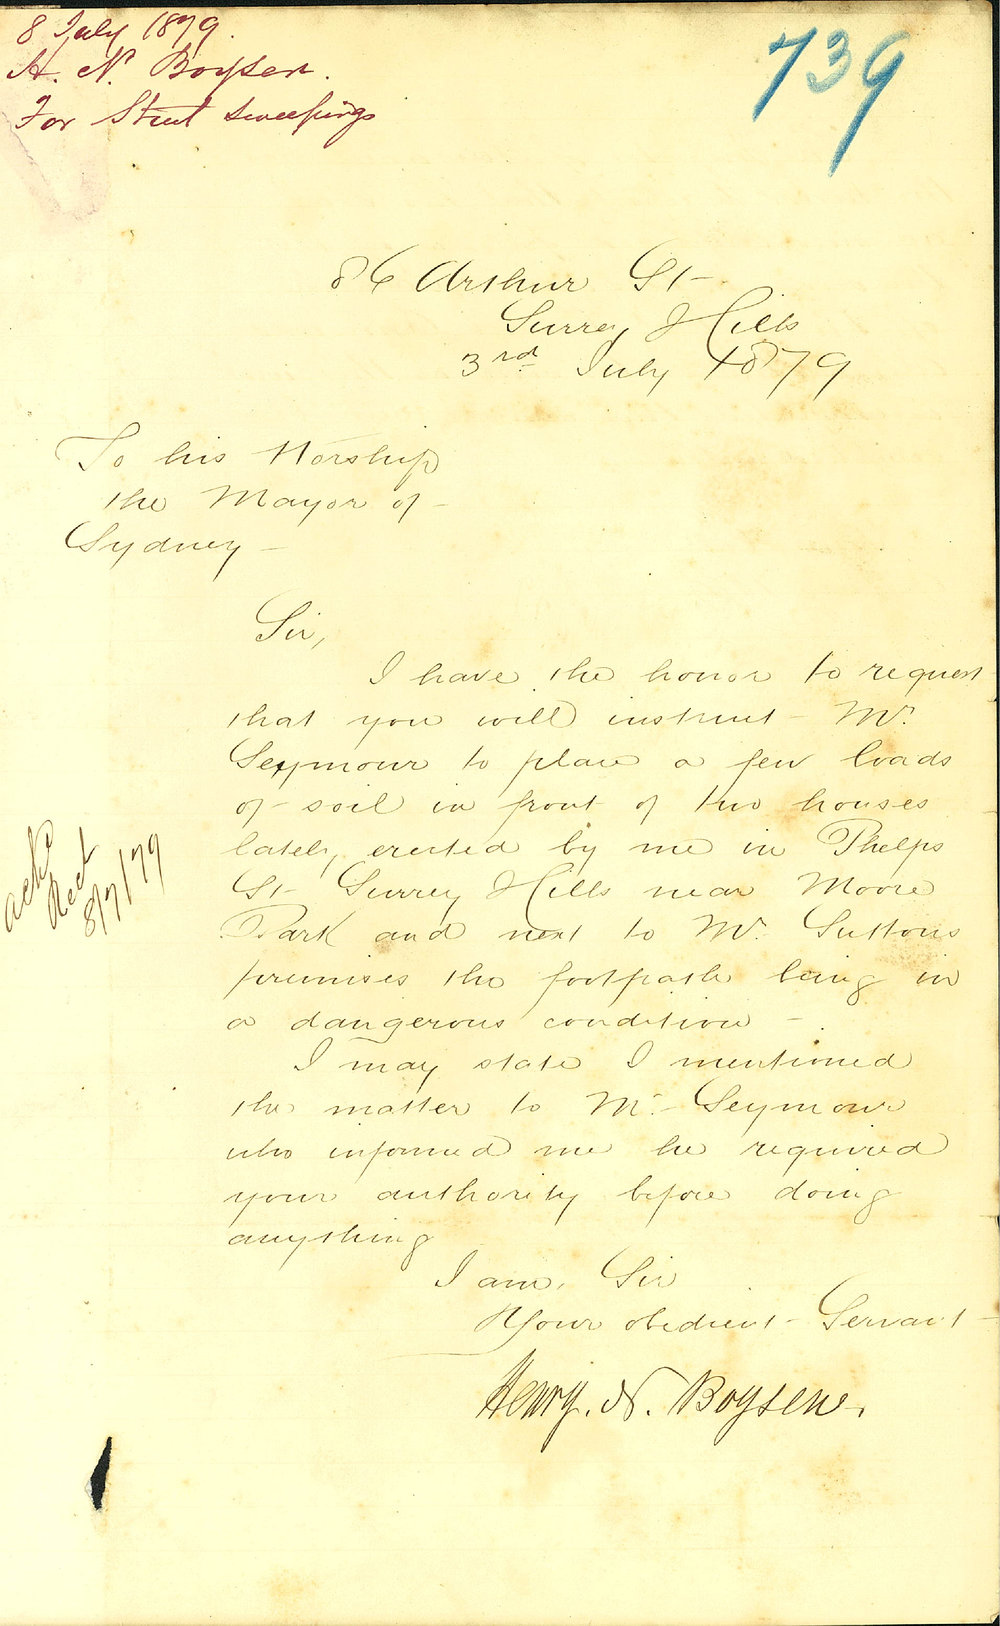 8 July 1879.
H. N. Boysen.
For Street Sweepings
739
86 Arthur St
Surrey Hills
3rd July 1879
To his Worship
the Mayor of
Sydney
Sir,
I have the honor to request
that you will instruct Mr.
Seymour to place a few loads
of soil in front of two houses
lately erected by me in Phelps
St Surrey Hills near Moore
Park and next to Mr. Suttons
premises the footpath being in
a dangerous condition -
I may state I mentioned
the matter to Mr. Seymour
who informed me he required
your authority before doing
anything
I am, Sir
Your obedient Servant
Henry. N. Boysen.
ackd
Rect
8/7/79